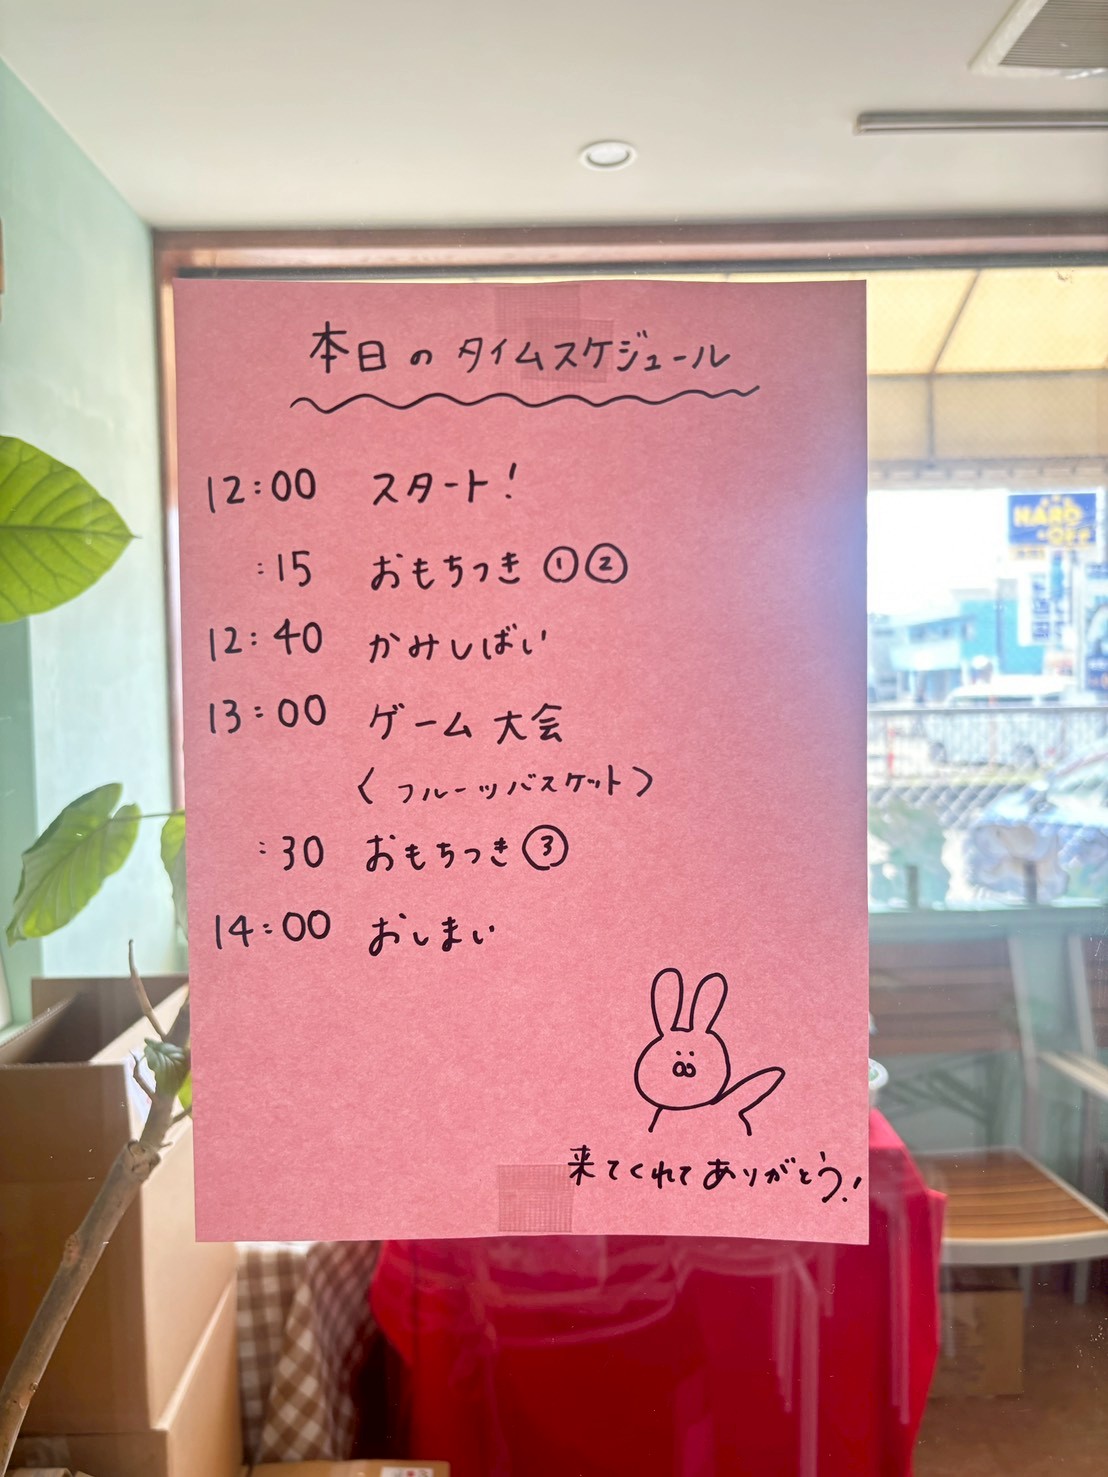 本日のタイムスケジュール
12:00 スタート!
:15 おもちつき①②
12:40 かみしばい
13:00 ゲーム大会
〈フルーツバスケット〉
:30 おもちつき③
14:00 おしまい
来てくれてありがとう!
HARD
OFF